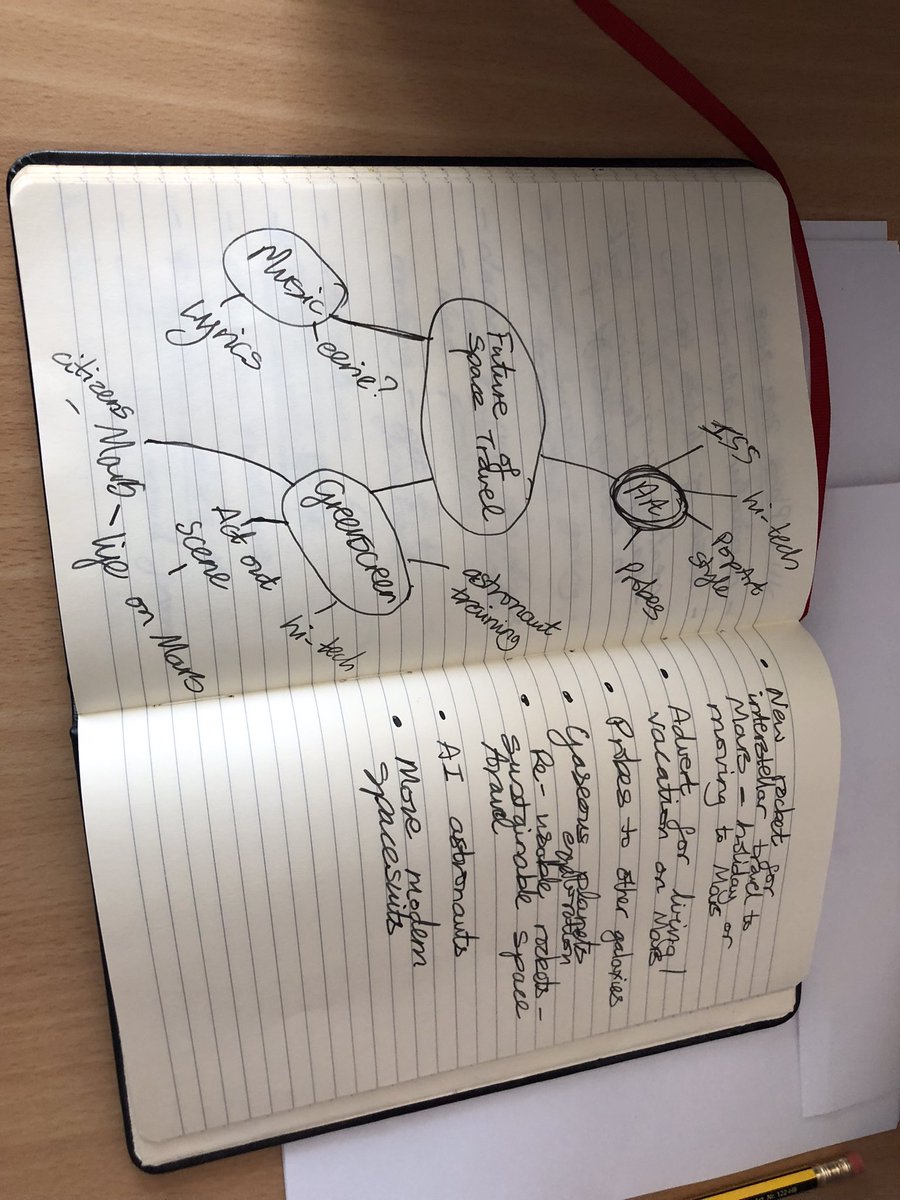 ISS
hi-tech
Pop Art
style
Probes
Art
Future of
Space Travel
Music
eerie?
Lyrics
Greenscreen
astronaut
training
hi-tech
Act out
scene
citizens Mars - life on Mars
• New rocket for
interstellar travel to
Mars - holiday or
moving to Mars
• Advert for living /
vacation on Mars
• Probes to other galaxies
• Gaseous planets
exploration
• Re-usable rockets -
sustainable space
travel
• AI astronauts
• More modern
spacesuits